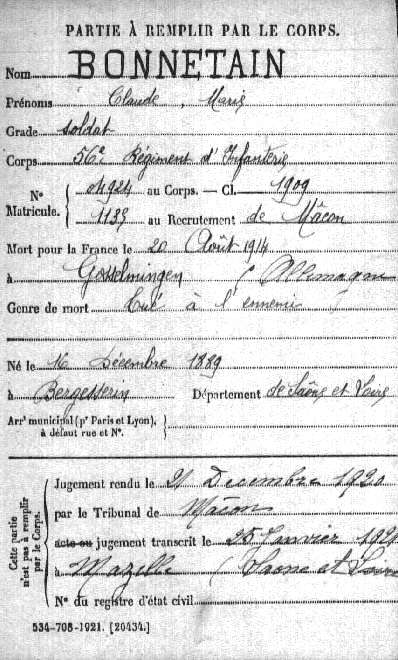 PARTIE À REMPLIR PAR LE CORPS.
Nom BONNETAIN
Prénoms Claude, Marie
Grade soldat
Corps 56e Régiment d'Infanterie
No Matricule. { 04924 au Corps. — Cl. 1909
1135 au Recrutement de Mâcon
Mort pour la France le 20 Août 1914
à Gosselmingen (Allemagne
Genre de mort tué à l'ennemi
Né le 16 Décembre 1889
à Bergesserin Département de Saône et Loire
Arrt municipal (pr Paris et Lyon), à défaut rue et No.
Cette partie n'est pas à remplir par le Corps.
Jugement rendu le 21 Decembre 1920
par le Tribunal de Mâcon
acte ou jugement transcrit le 25 Janvier 1921
à Mazille (Saone et Loire
No du registre d'état civil
534-708-1921. [26434.]